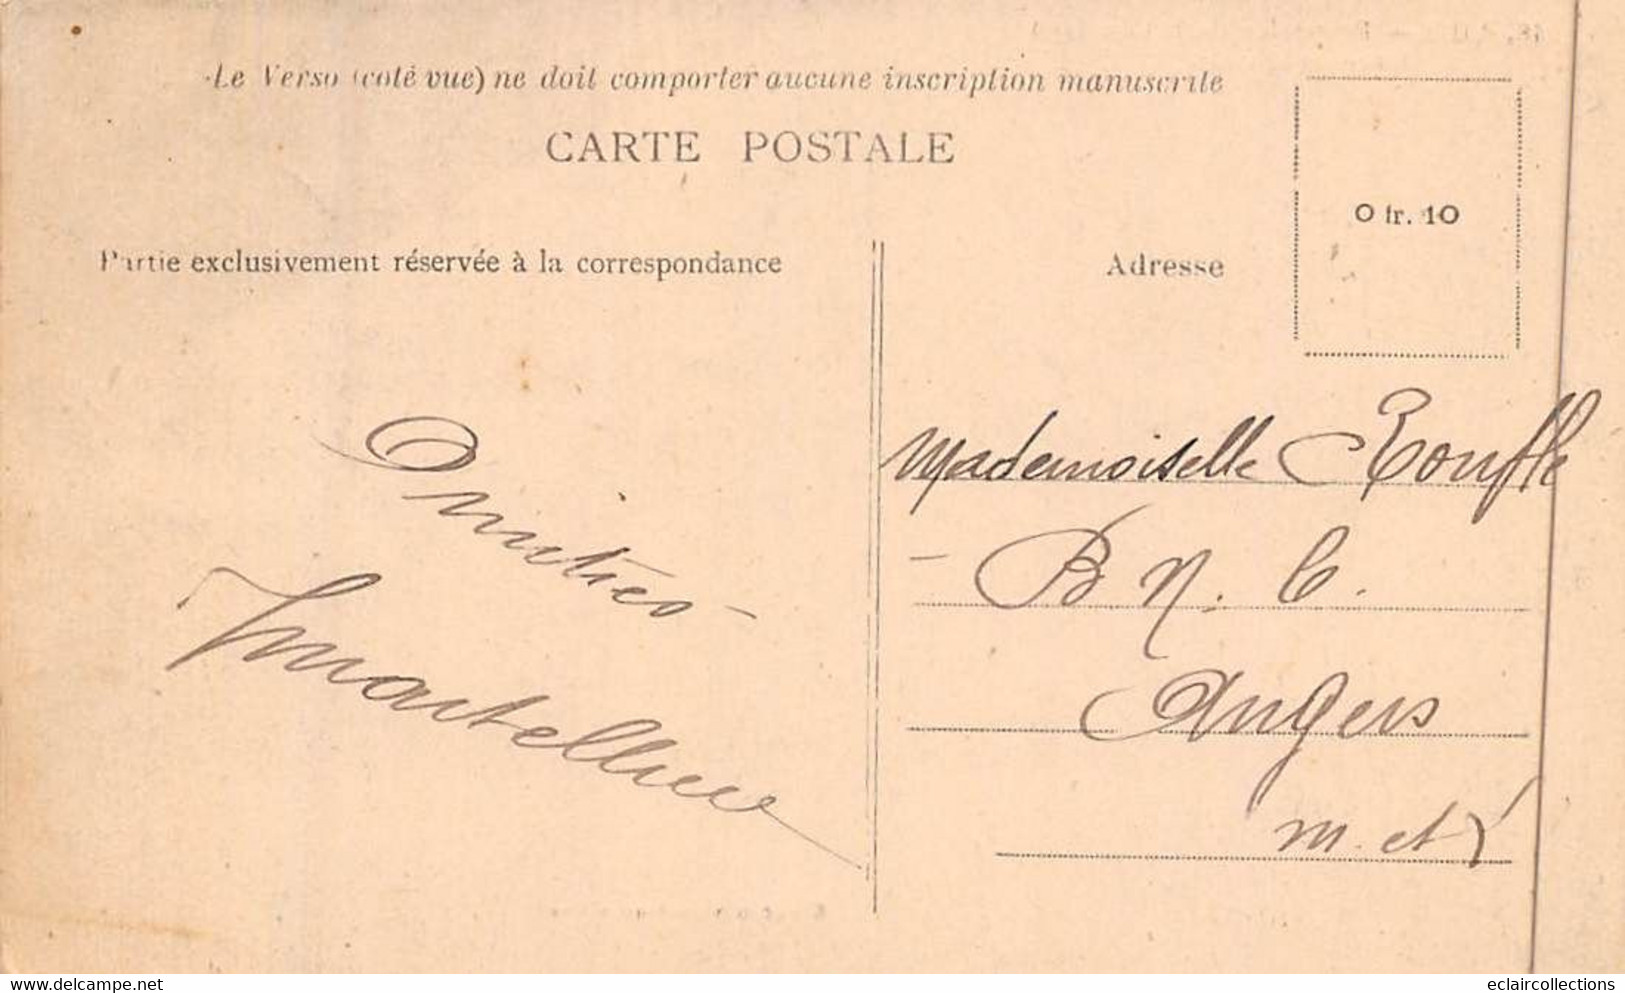 Le Verso (coté vue) ne doit comporter aucune inscription manuscrite
CARTE POSTALE
O fr. 10
Partie exclusivement réservée à la correspondance
Adresse
Amitiés
Mademoiselle
B. N. C.
Angers
M. et L
delcampe.net
eclaircollections